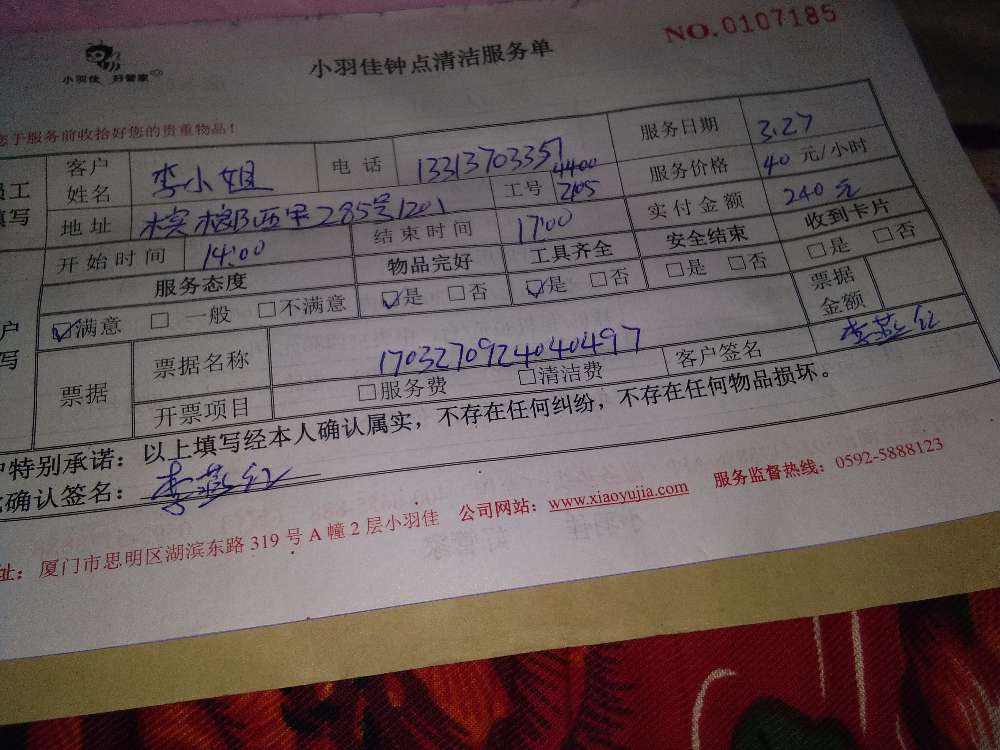 小羽佳 好管家
小羽佳钟点清洁服务单
NO.0107185
您于服务前收拾好您的贵重物品！
员工填写
客户姓名 李小姐 电话 13313703357 服务日期 3.27
地址 槟榔西里285号1201 工号 4400 2105 服务价格 40元/小时
开始时间 14:00 结束时间 17:00 实付金额 240元
服务态度 物品完好 工具齐全 安全结束 收到卡片
☑满意 □一般 □不满意 ☑是 □否 ☑是 □否 □是 □否 □是 □否
票据 票据名称 1703270924040497 票据金额
开票项目 □服务费 □清洁费 客户签名 李燕红
户特别承诺：以上填写经本人确认属实，不存在任何纠纷，不存在任何物品损坏。
确认签名：李燕红
址：厦门市思明区湖滨东路319号A幢2层小羽佳 公司网站：www.xiaoyujia.com 服务监督热线：0592-5888123